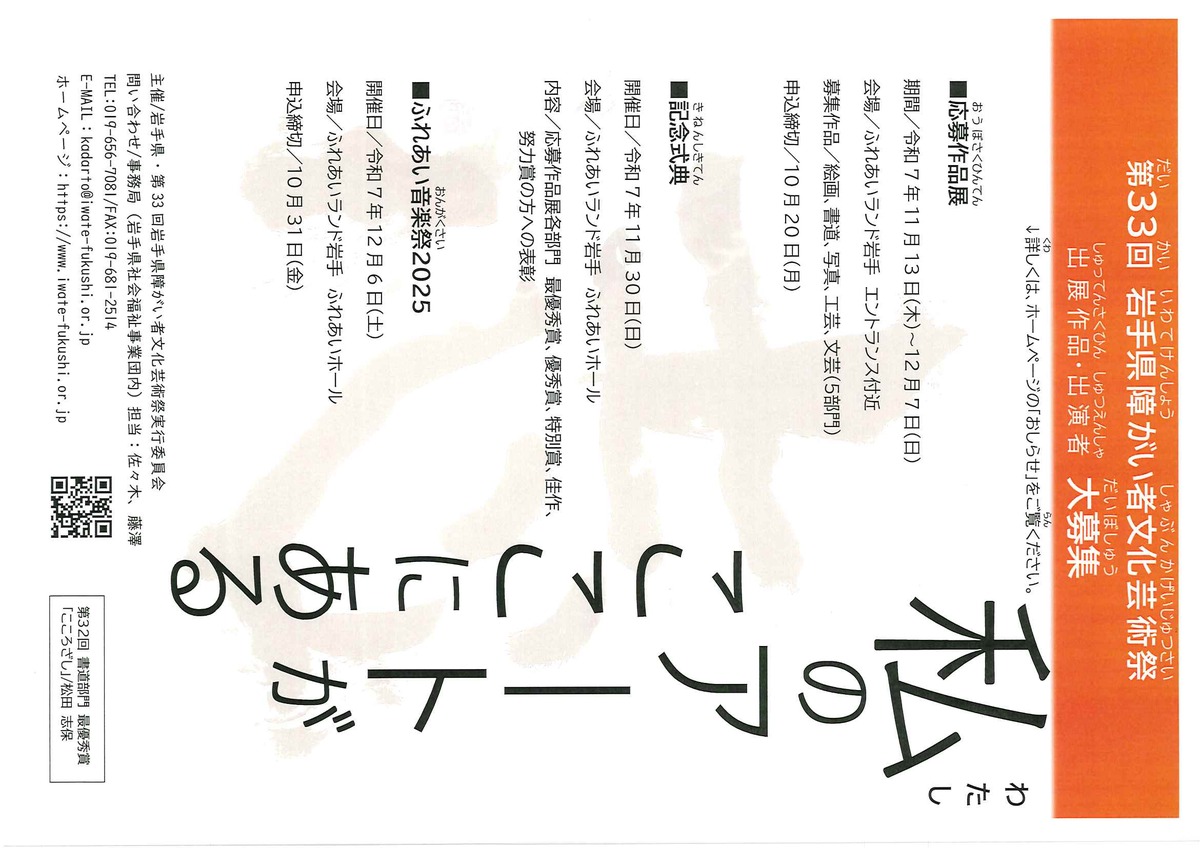 第33回 岩手県障がい者文化芸術祭
だい かい いわてけんしょう しゃぶんかげいじゅつさい
出展作品・出演者 大募集
しゅってんさくひん しゅつえんしゃ だいぼしゅう
↓詳しくは、ホームページの「おしらせ」をご覧ください。
くわ らん
私のアートが
わたし
ここにある
■応募作品展
おうぼさくひんてん
期間／令和7年11月13日(木)～12月7日(日)
会場／ふれあいランド岩手 エントランス付近
募集作品／絵画、書道、写真、工芸、文芸(5部門)
申込締切／10月20日(月)
■記念式典
きねんしきてん
開催日／令和7年11月30日(日)
会場／ふれあいランド岩手 ふれあいホール
内容／応募作品展各部門 最優秀賞、優秀賞、特別賞、佳作、
努力賞の方への表彰
■ふれあい音楽祭2025
おんがくさい
開催日／令和7年12月6日(土)
会場／ふれあいランド岩手 ふれあいホール
申込締切／10月31日(金)
主催/岩手県・第33回岩手県障がい者文化芸術祭実行委員会
問い合わせ/事務局（岩手県社会福祉事業団内）担当：佐々木、藤澤
TEL:019-656-7081/FAX:019-681-2514
E-MAIL：kadarto@iwate-fukushi.or.jp
ホームページ：https://www.iwate-fukushi.or.jp
第32回 書道部門 最優秀賞
「こころざし」/松田 志保